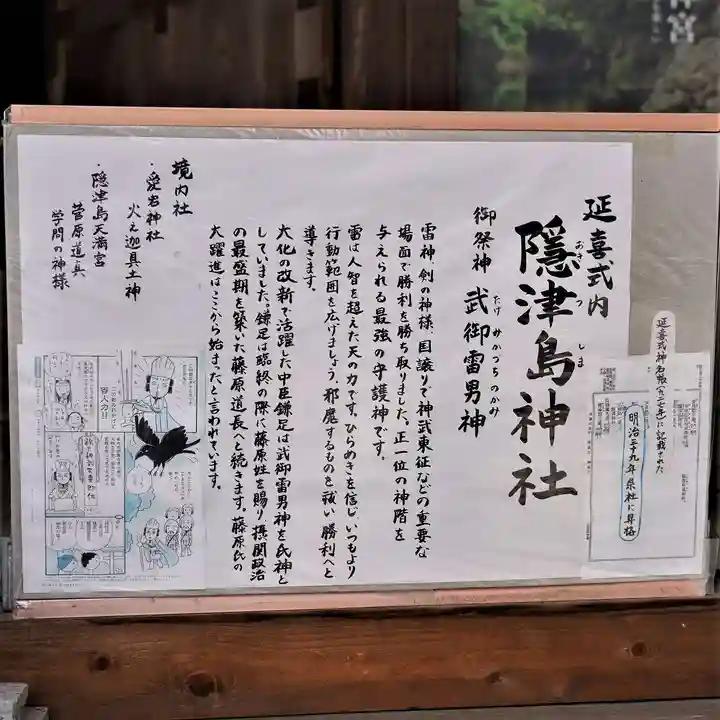 延喜式内
隠津島神社
おき つ しま
御祭神 武御雷男神
たけ みかづち のかみ
雷神、剣の神様、国譲りで神武東征などの重要な
場面で勝利を勝ち取りました。正一位の神階を
与えられる最強の守護神です。
雷は人智を超えた天の力です。ひらめきを信じ、いつもより
行動範囲を広げましょう。邪魔するものを祓い勝利へと
導きます。
大化の改新で活躍した中臣鎌足は武御雷男神を氏神と
していました。鎌足は臨終の際に藤原姓を賜り摂関政治
の最盛期を築いた藤原道長へと続きます。藤原氏の
大躍進はここから始まったと言われています。
境内社
・愛宕神社
火之迦具土神
・隠津島天満宮
菅原道真
学問の神様
延喜式神名帳(九二七年)に記載された
明治三十九年県社に昇格